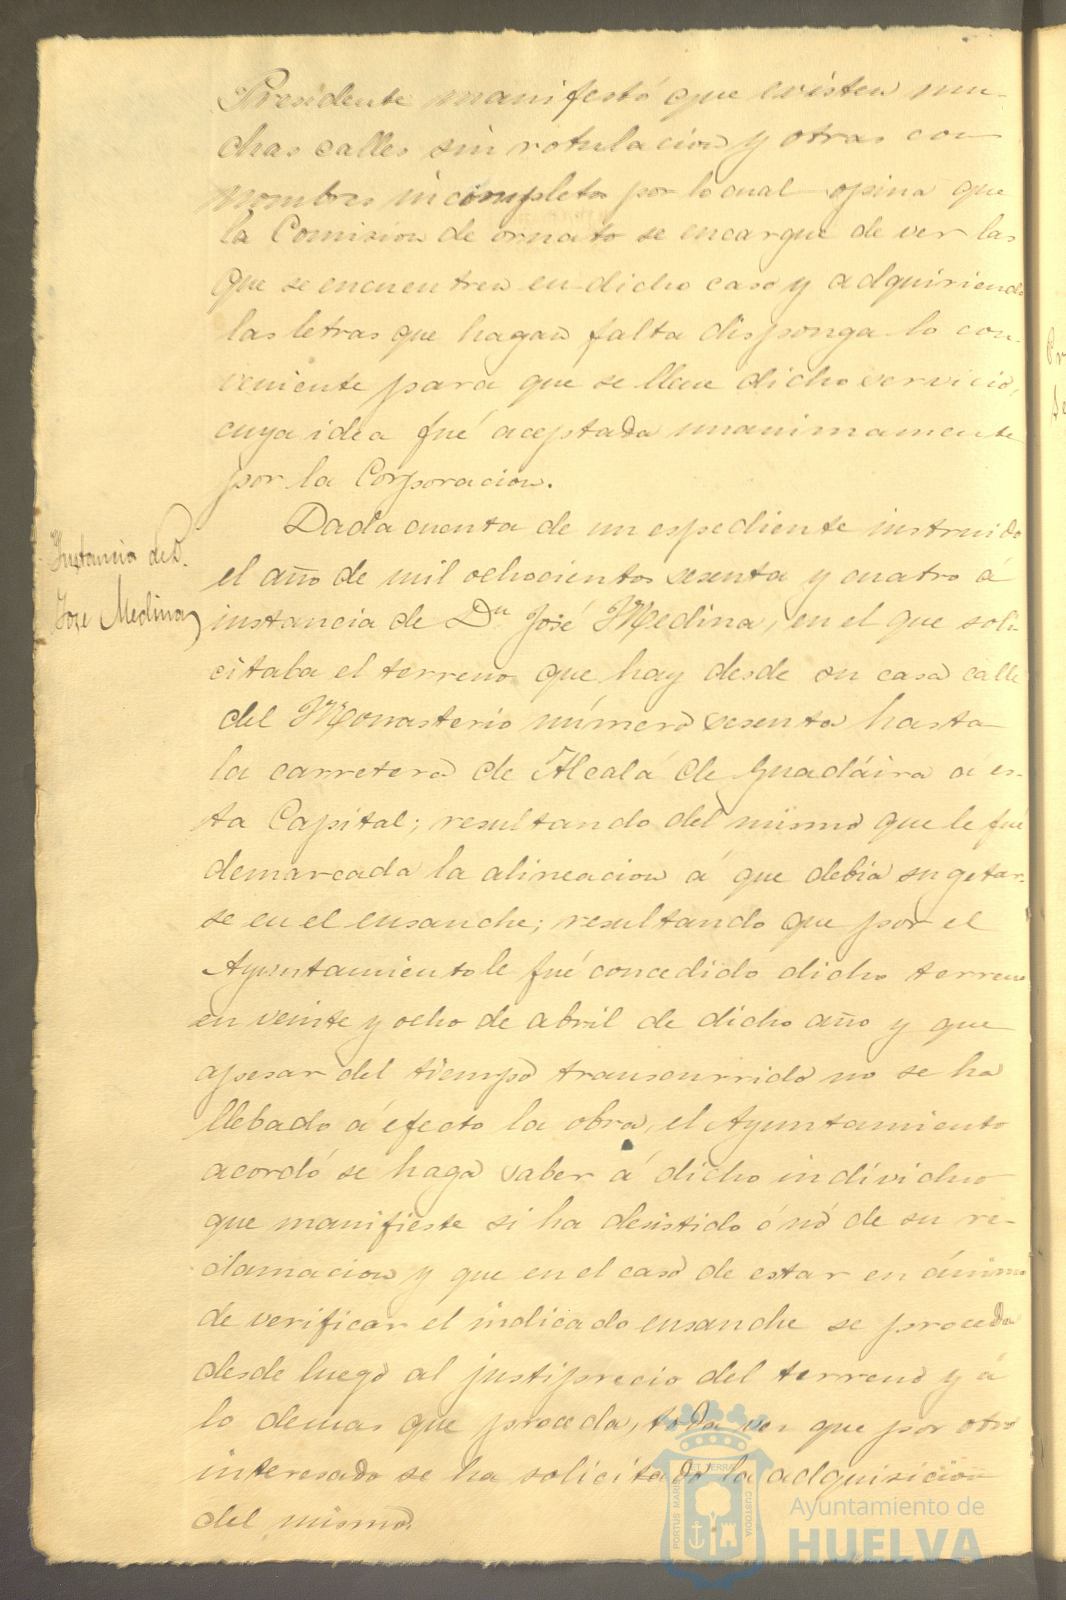 Presidente manifestó que existen mu-
chas calles sin rotulacion y otras con
nombres incompletos por lo cual opina que
la Comision de ornato se encargue de ver las
que se encuentren en dicho caso y adquiriendo
las letras que hagan falta disponga lo con-
veniente para que se lleve dicho servicio,
cuya idea fué aceptada unanimamente
por la Corporacion.
Dada cuenta de un espediente instruido
Instancia de D.
José Medina
el año de mil ochocientos sesenta y cuatro á
instancia de Dn José Medina, en el que soli-
citaba el terreno que hay desde su casa calle
del Monasterio número sesenta hasta
la carretera de Alcalá de Guadáira á es-
ta Capital; resultando del mismo que le fué
demarcada la alineacion á que debia sugetar-
se en el ensanche; resultando que por el
Ayuntamiento le fué concedido dicho terreno
en veinte y ocho de abril de dicho año y que
apesar del tiempo transcurrido no se ha
llebado á efecto la obra, el Ayuntamiento
acordó se haga saber á dicho individuo
que manifieste si ha desistido ó nó de su re-
clamacion y que en el caso de estar en ánimo
de verificar el indicado ensanche se proceda
desde luego al justiprecio del terreno y á
lo demas que proceda, toda vez que por otro
interesado se ha solicitado la adquisicion
del mismo.
PORTUS MARIS ET TERRAE CUSTODIA
Ayuntamiento de
HUELVA